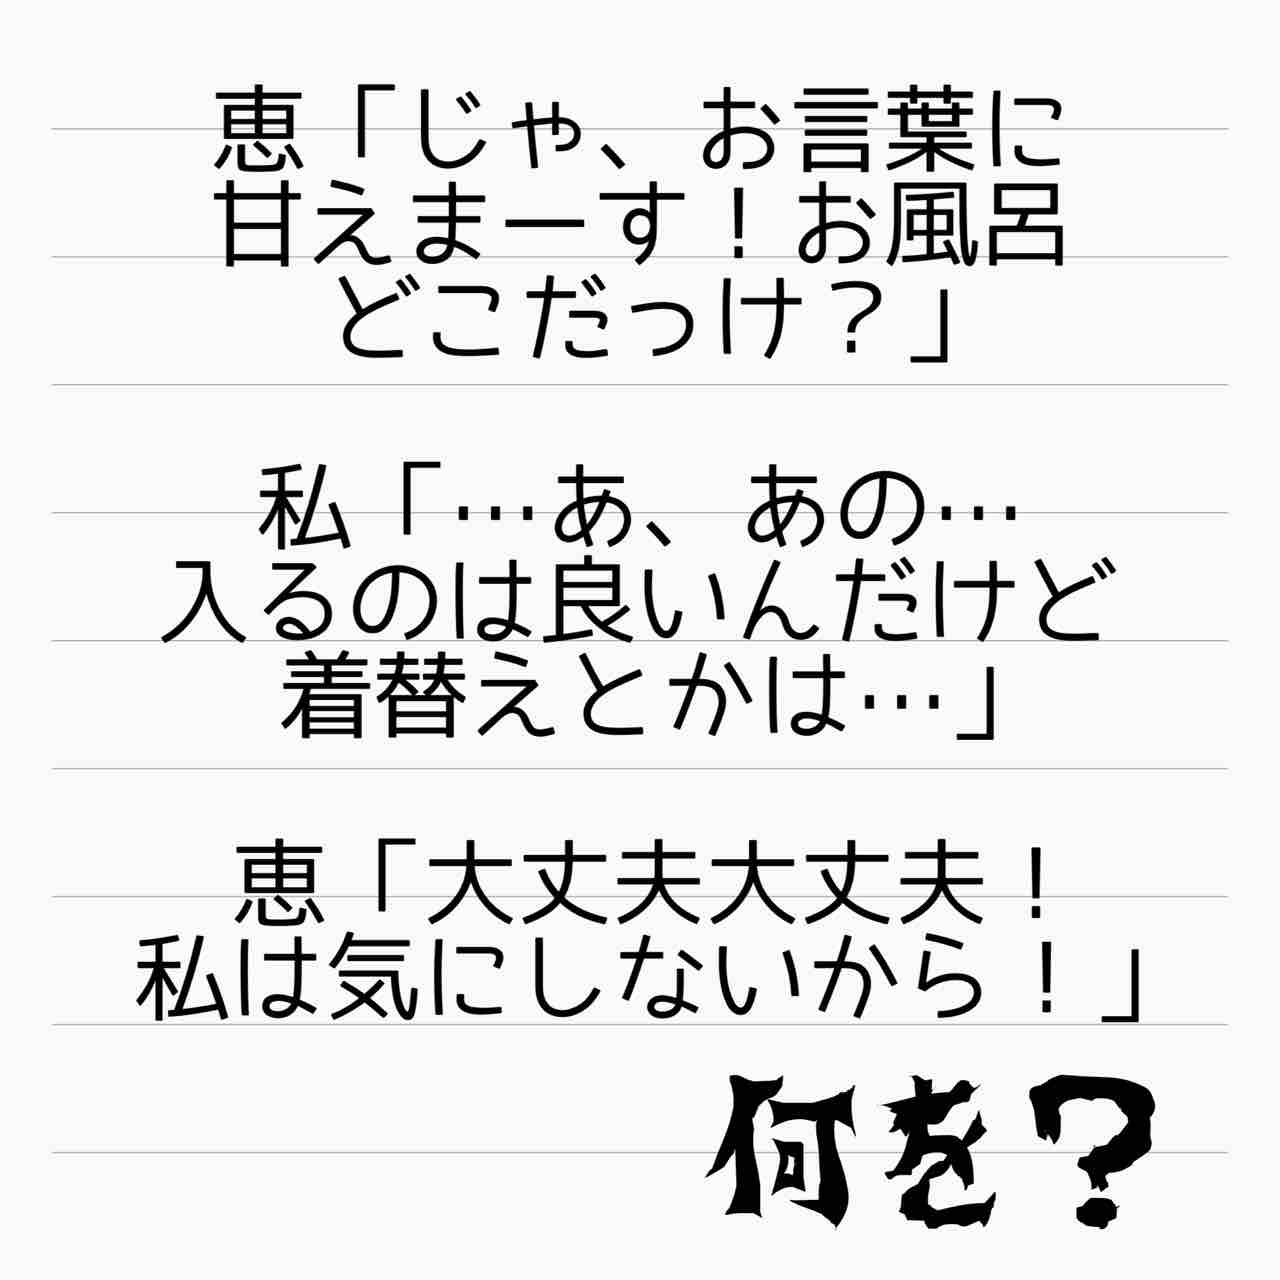 恵「じゃ、お言葉に
甘えまーす！お風呂
どこだっけ？」
私「…あ、あの…
入るのは良いんだけど
着替えとかは…」
恵「大丈夫大丈夫！
私は気にしないから！」
何を？